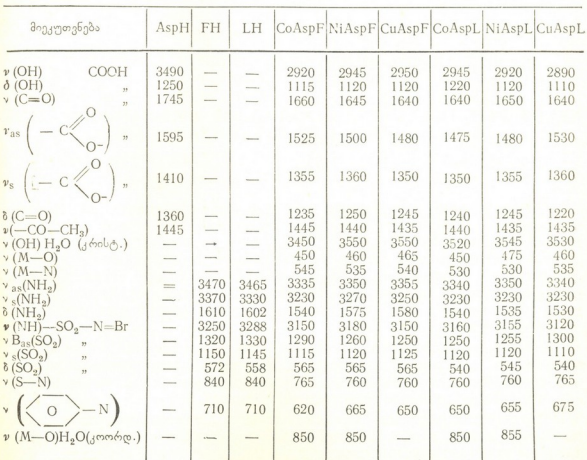 მიეკუთვნება AspH FH LH CoAspF NiAspF CuAspF CoAspL NiAspL CuAspL
ν (OH) COOH 3490 — — 2920 2945 2950 2945 2920 2890
δ (OH) „ 1250 — — 1115 1120 1120 1220 1120 1110
ν (C=O) „ 1745 — — 1660 1645 1640 1640 1650 1640
O
νas ( — C „ 1595 — — 1525 1500 1480 1475 1480 1530
O-
O
νs ( — C „ 1410 — — 1355 1360 1350 1350 1355 1360
O-
δ (C=O) 1360 — — 1235 1250 1245 1240 1245 1220
ν(—CO—CH₃) 1445 — — 1445 1440 1435 1440 1435 1435
ν (OH) H₂O (კრისტ.) — — — 3450 3550 3550 3520 3545 3530
ν (M—O) — — — 450 460 465 450 475 460
ν (M—N) — — — 545 535 540 530 530 535
ν as(NH₂) = 3470 3465 3335 3350 3355 3340 3350 3340
ν s(NH₂) — 3370 3330 3230 3270 3250 3230 3230 3230
δ (NH₂) — 1610 1602 1540 1575 1580 1540 1535 1530
ν (NH)—SO₂—N=Br — 3250 3288 3150 3180 3150 3160 3155 3120
ν Bas(SO₂) „ — 1320 1330 1290 1260 1250 1250 1255 1300
ν s(SO₂) „ — 1150 1145 1115 1120 1125 1120 1120 1110
δ (SO₂) „ — 572 558 565 565 565 540 545 540
ν (S—N) — 840 840 765 760 760 760 760 765
ν ( O — N ) — 710 710 620 665 650 650 655 675
ν (M—O)H₂O(კოორდ.) — — — 850 850 — 850 855 —